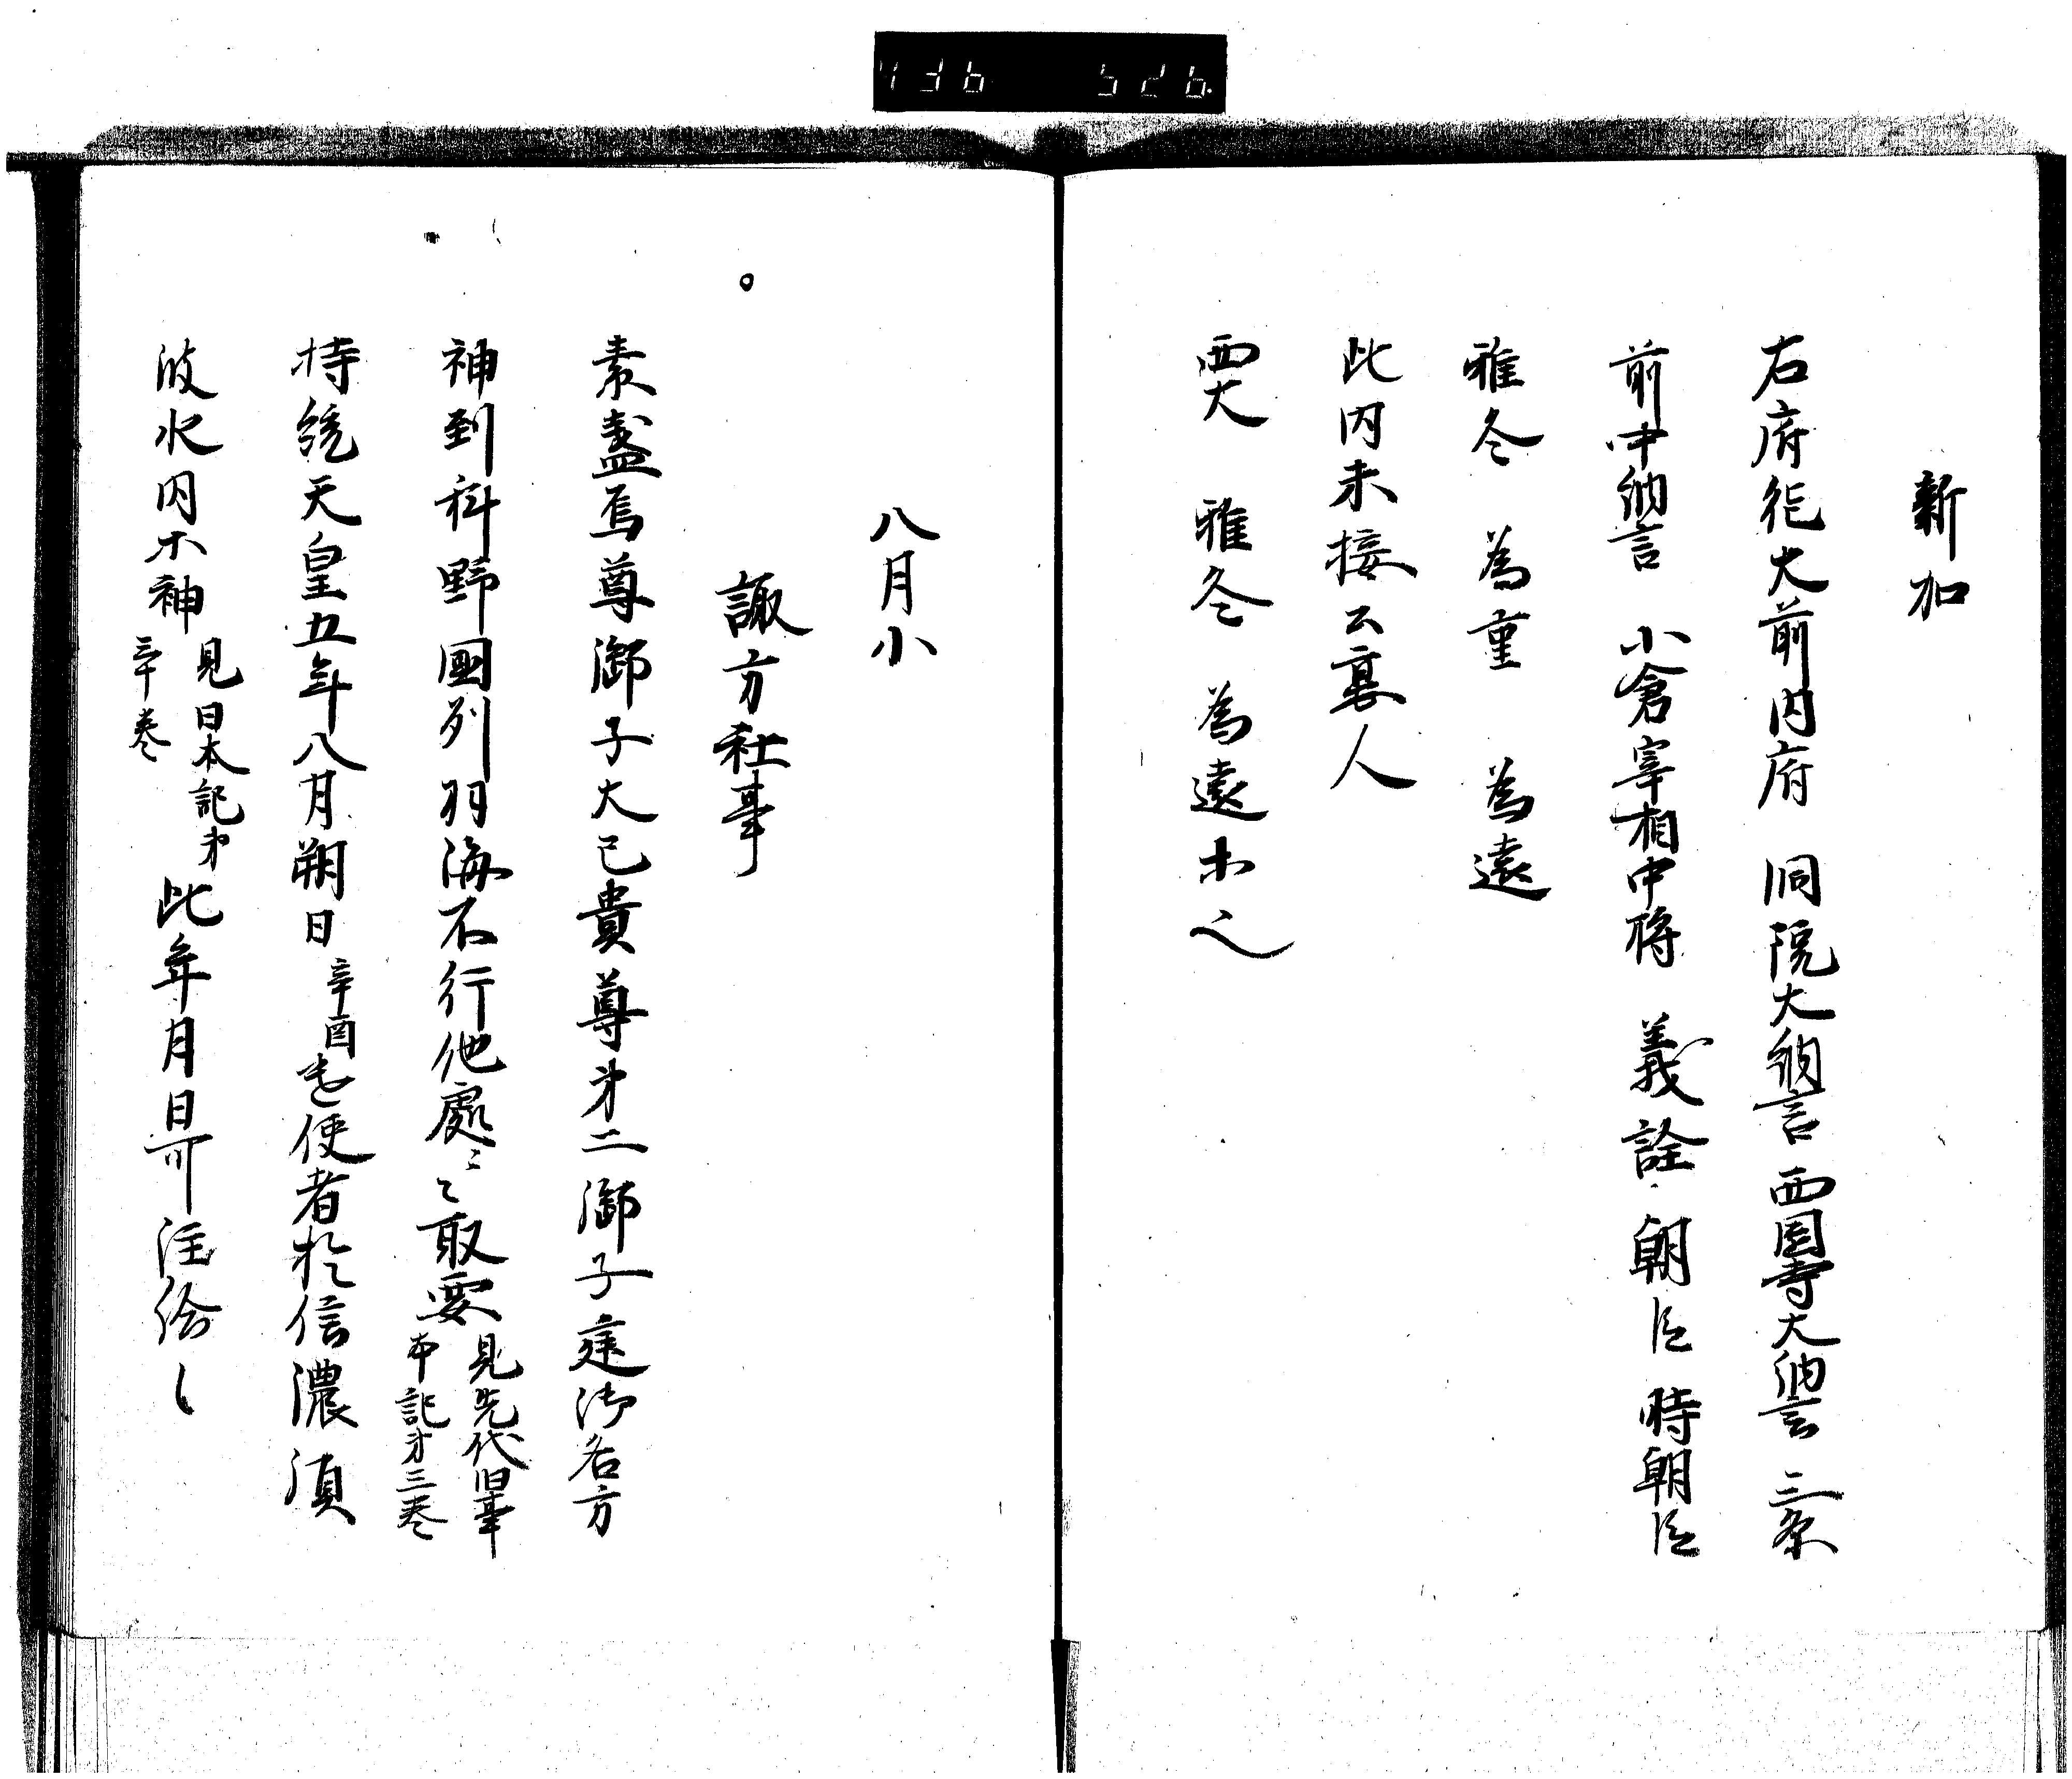 新加
右府征大前内府 洞院大納言 西園寺大納言 三条
前中納言 小倉宰相中将 義詮朝臣 時朝臣
雅冬 為重 為遠
此内未接公宴人
西大 雅冬 為遠
八月小
諏方社事
素盞烏尊御子大己貴尊才二御子建御名方
神到科野國列羽海不行他處云々取要
見先代旧事
本記才三巻
持統天皇五年八月朔日
辛酉
遣使者於信濃須
波水内木神
見日本記才
三十巻
此年月日可注給
436 526